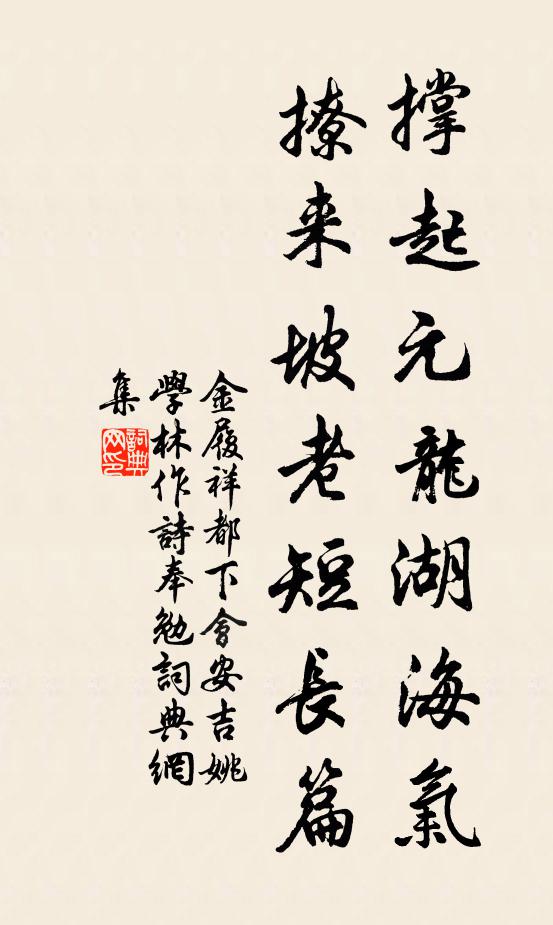 撐起元龍湖海氣
撩来坡老短長篇
金履祥都下會安吉姚
學林作詩奉勉詞典網
集
詞典
网印